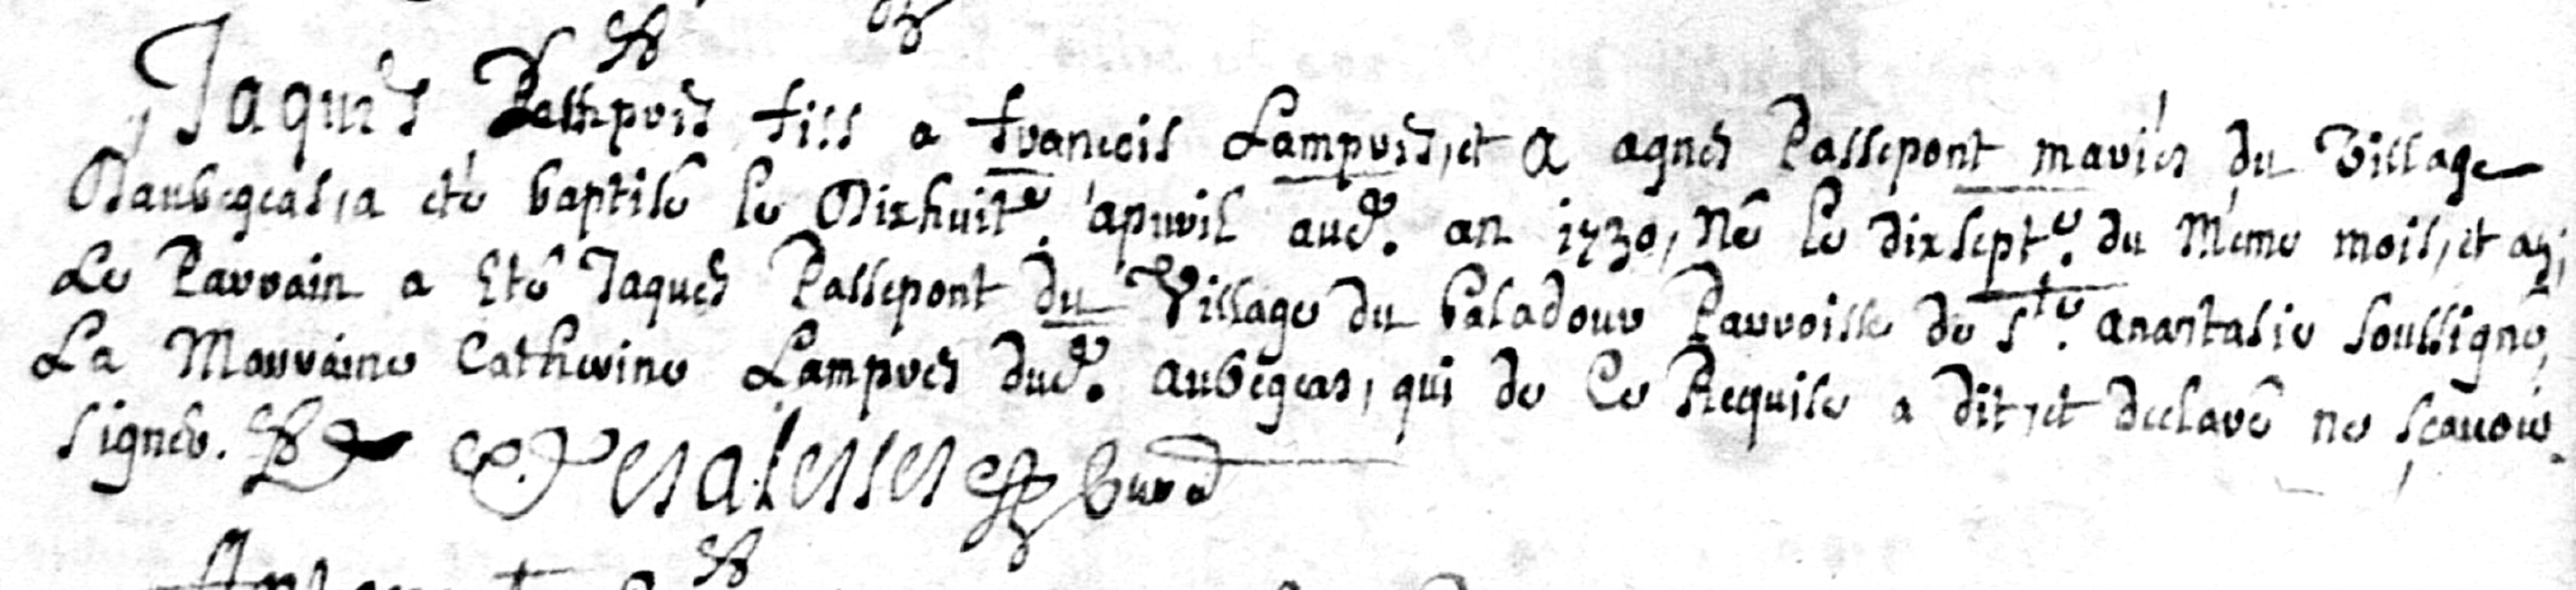 Jaques Lampres fils a francois Lampres, et a agnes Passepont mariés du village
D'aubegeas, a eté baptisé le Dixhuite. apuril aud. an 1730, Né le dixsepte. du Méme mois, et an;
Le Parrain a Eté Jaques Passepont du Village du valadour Parroisse de ste. anastasie soussigné,
La Marraine Catherine Lampres dud. aubegeas, qui de Ce Requise a dit, et declaré ne sçauoir
signer. Desalesses Curé